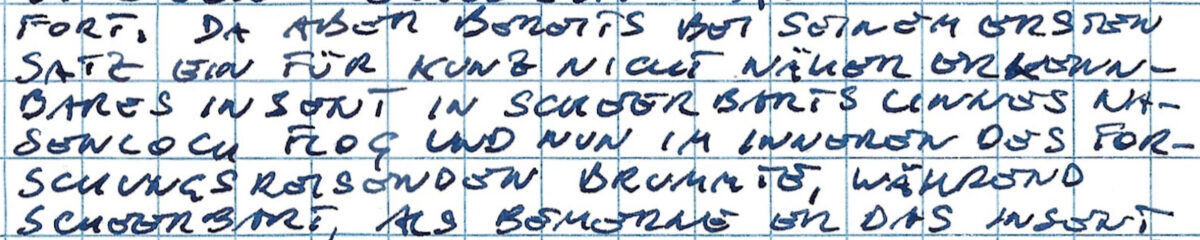 FORT. DA ABER BEREITS BEI SEINEM ERSTEN
SATZ EIN FÜR KUNZ NICHT NÄHER ERKENN-
BARES INSEKT IN SCHEERBARTS LINKES NA-
SENLOCH FLOG UND NUN IM INNEREN DES FOR-
SCHUNGSREISENDEN BRUMMTE, WÄHREND
SCHEERBART, ALS BEMERKE ER DAS INSEKT